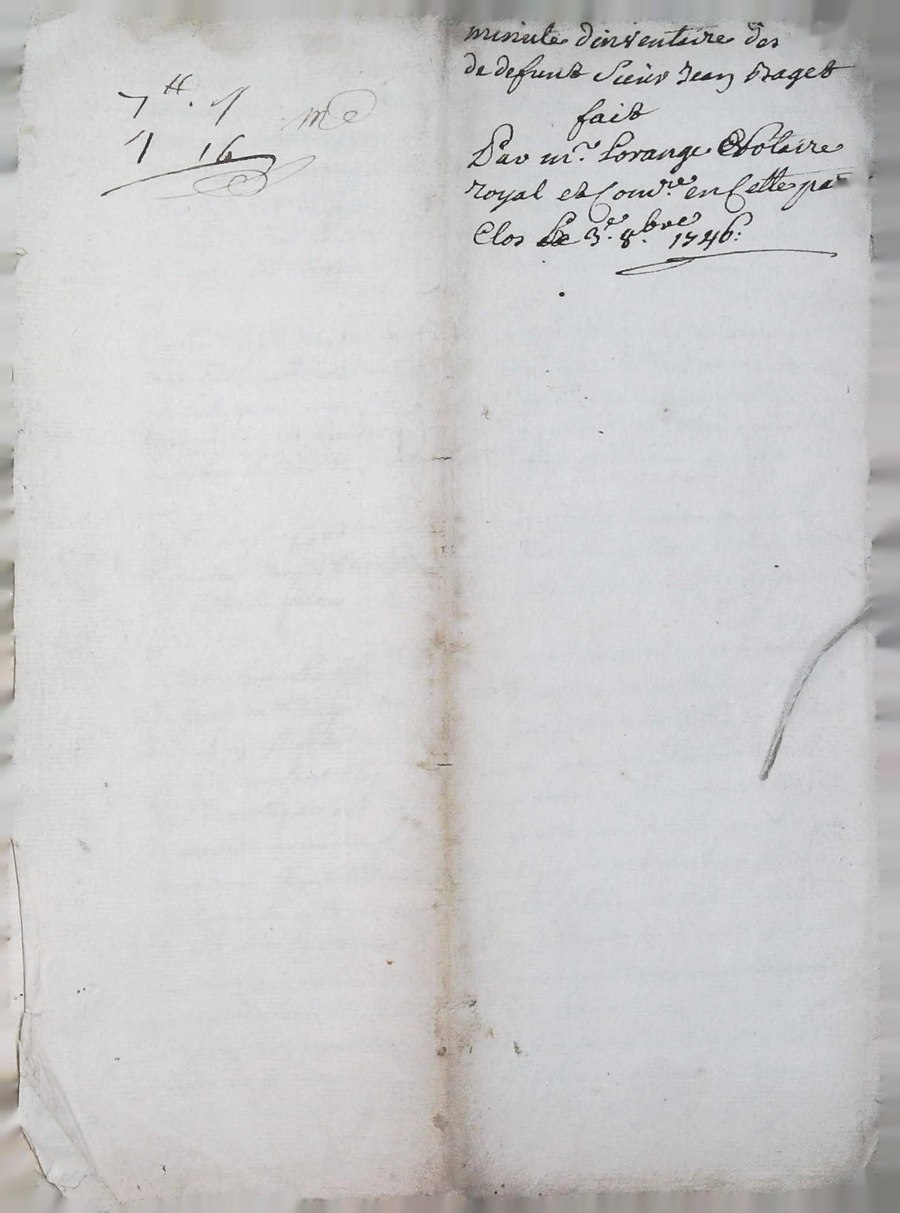 7 ᴴ. 1
1 16
minute d'inventaire des
de defunt Sieur Jean Raget
fait
Par mʳ. Lorange Notaire
royal et Comʳᵉ en Cette pa
Clos Le 3ᵉ. 8ᵇʳᵉ. 1746: